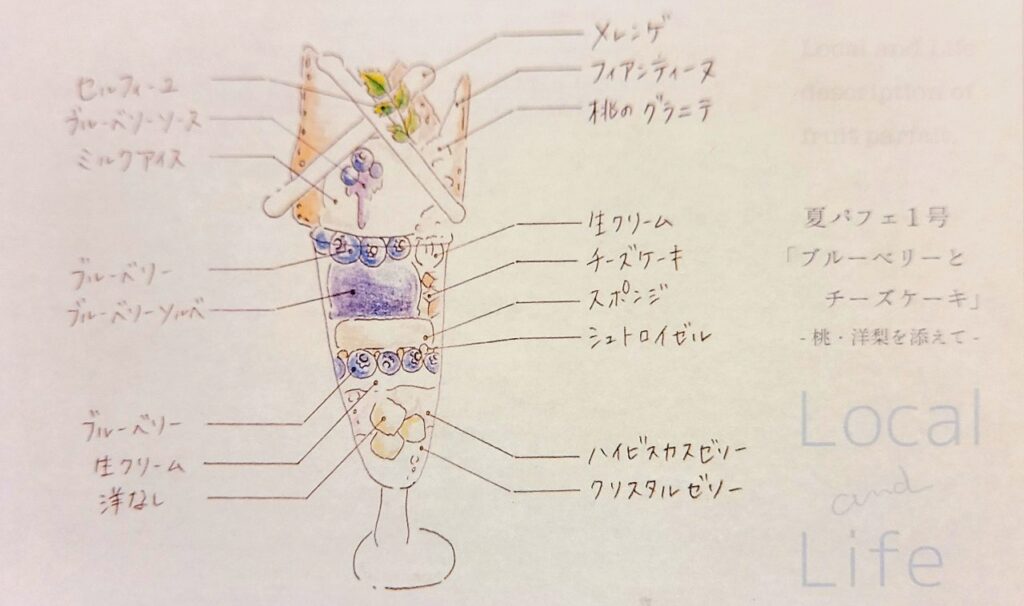 セルフィーユ
ブルーベリーソース
ミルクアイス
ブルーベリー
ブルーベリーソルベ
ブルーベリー
生クリーム
洋なし
メレンゲ
フィアンティーヌ
桃のグラニテ
生クリーム
チーズケーキ
スポンジ
シュトロイゼル
ハイビスカスゼリー
クリスタルゼリー
Local and Life
description of
fruit parfait.
夏パフェ1号
「ブルーベリーと
チーズケーキ」
- 桃・洋梨を添えて -
Local
and
Life